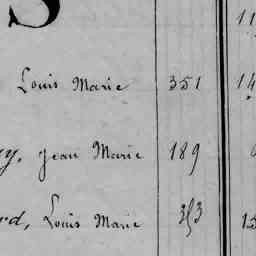 S 11
Louis Marie 351 14
y, Jean Marie 189
rd, Louis Marie 353 15